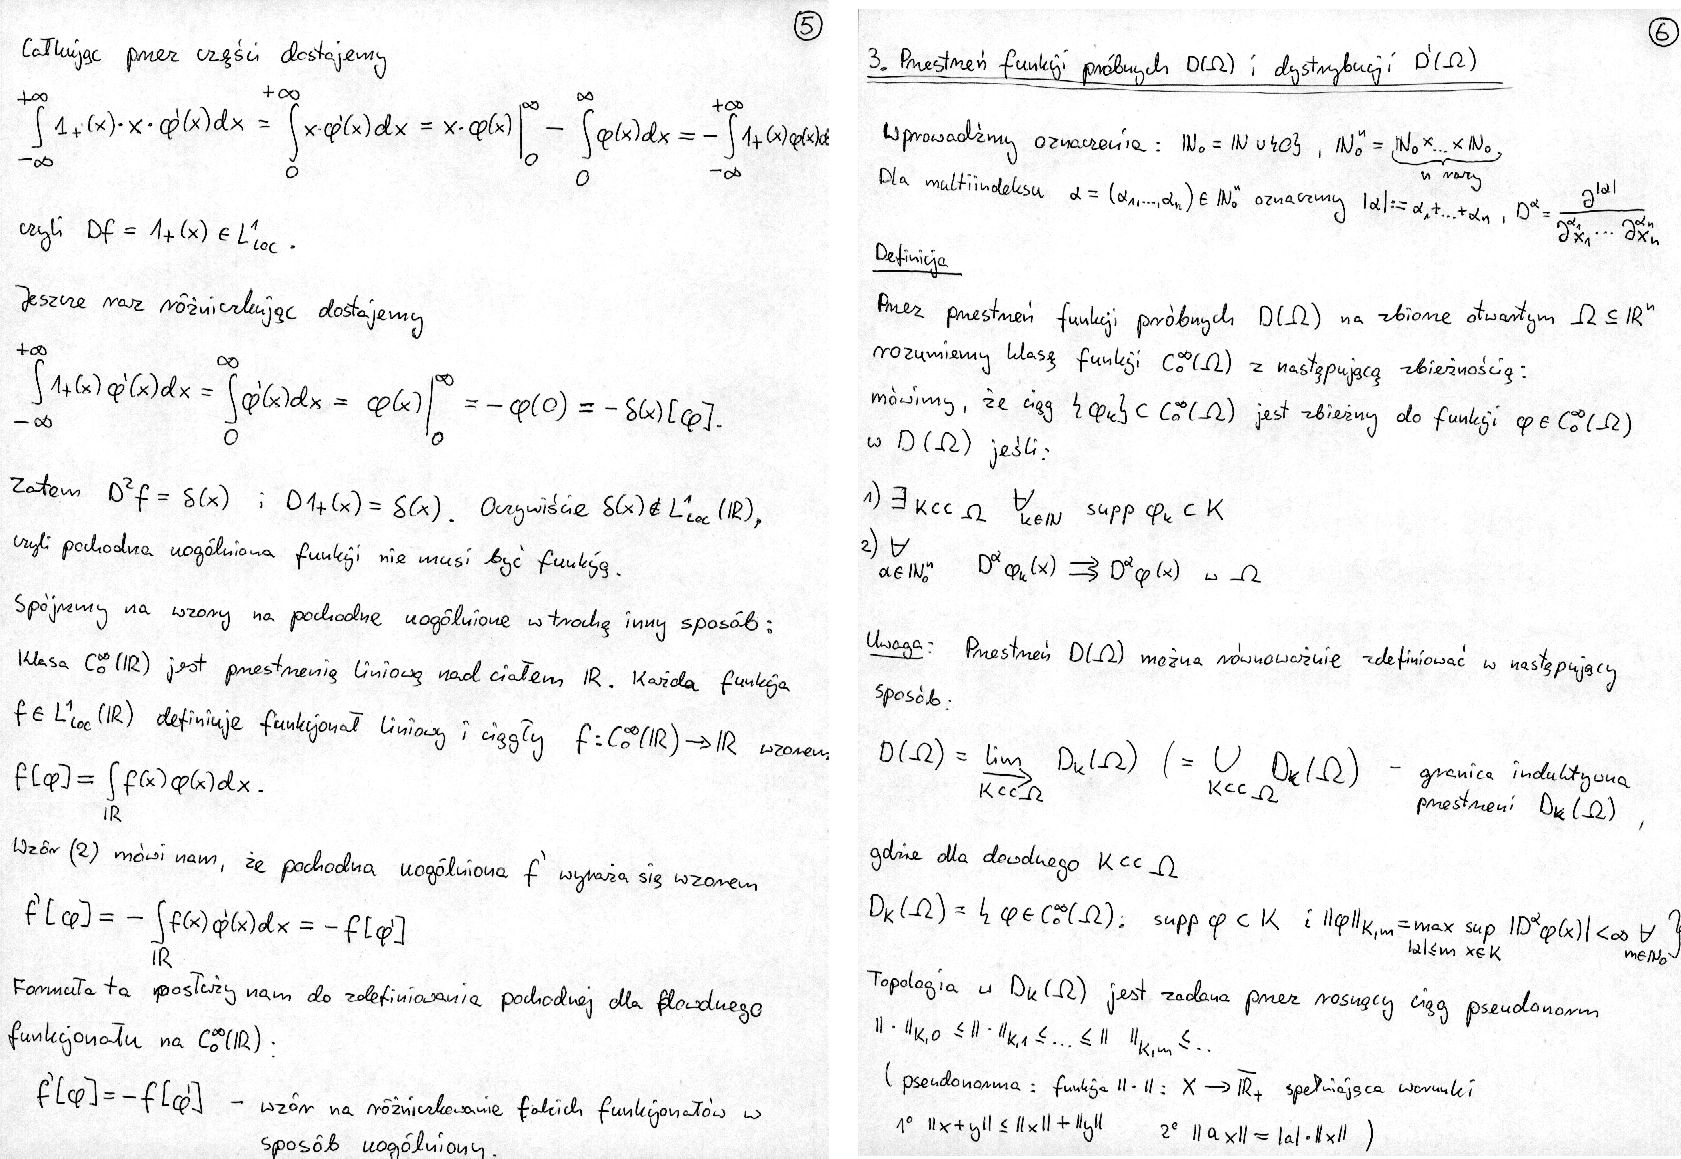 5
Całkując przez części dostajemy
+∞∫-∞ 1₊(x)·x·φ'(x)dx = +∞∫0 x·φ'(x)dx = x·φ(x)|∞0 − ∞∫0 φ(x)dx = −+∞∫-∞ 1₊(x)φ(x)dx
czyli Df = 1₊(x) ∈ L¹loc.
Jeszcze raz różniczkując dostajemy
+∞∫-∞ 1₊(x)φ'(x)dx = ∞∫0 φ'(x)dx = φ(x)|∞0 = −φ(0) = −δ(x)[φ].
Zatem D²f = δ(x) i D1₊(x) = δ(x). Oczywiście δ(x)∉L¹loc(ℝ),
czyli pochodna uogólniona funkcji nie musi być funkcją.
Spójrzmy na wzory na pochodne uogólnione w trochę inny sposób:
Klasa C₀^∞(ℝ) jest przestrzenią liniową nad ciałem ℝ. Każda funkcja
f ∈ L¹loc(ℝ) definiuje funkcjonał liniowy i ciągły f:C₀^∞(ℝ)→ℝ wzorem
f[φ] = ∫ℝ f(x)φ(x)dx.
Wzór (2) mówi nam, że pochodna uogólniona f' wyraża się wzorem
f'[φ] = −∫ℝ f(x)φ'(x)dx = −f[φ']
Formuła ta posłuży nam do zdefiniowania pochodnej dla dowolnego
funkcjonału na C₀^∞(ℝ):
f'[φ] = −f[φ'] – wzór na różniczkowanie takich funkcjonałów w
sposób uogólniony.
6
3. Przestrzeń funkcji próbnych D(Ω) i dystrybucji D'(Ω)
Wprowadźmy oznaczenia: ℕ₀ = ℕ∪{0}, ℕ₀ⁿ = ℕ₀×...×ℕ₀,
n razy
Dla multiindeksu α = (α₁,...,αₙ) ∈ ℕ₀ⁿ oznaczmy |α| := α₁+...+αₙ, D^α = ∂^|α| / ∂^α₁x₁ ... ∂^αₙxₙ
Definicja
Przez przestrzeń funkcji próbnych D(Ω) na zbiorze otwartym Ω ⊆ ℝⁿ
rozumiemy klasę funkcji C₀^∞(Ω) z następującą zbieżnością:
mówimy, że ciąg {φₖ} ⊂ C₀^∞(Ω) jest zbieżny do funkcji φ ∈ C₀^∞(Ω)
w D(Ω) jeśli:
1) ∃ K⊂⊂Ω ∀ k∈ℕ supp φₖ ⊂ K
2) ∀ α∈ℕ₀ⁿ D^α φₖ(x) ⇉ D^α φ(x) w Ω
Uwaga: Przestrzeń D(Ω) można równoważnie zdefiniować w następujący
sposób:
D(Ω) = lim→ K⊂⊂Ω D_K(Ω) (= ∪ K⊂⊂Ω D_K(Ω) – granica induktywna
przestrzeni D_K(Ω),
gdzie dla dowolnego K⊂⊂Ω
D_K(Ω) = { φ∈C₀^∞(Ω): supp φ ⊂ K i ||φ||_K,m = max |α|≤m sup x∈K |D^α φ(x)| < ∞ ∀ m∈ℕ₀ }
Topologia w D_K(Ω) jest zadana przez rosnący ciąg pseudonorm
||·||_K,0 ≤ ||·||_K,1 ≤ ... ≤ || ||_K,m ≤ ..
( pseudonorma: funkcja ||·||: X → ℝ̄₊ spełniająca warunki
1° ||x+y|| ≤ ||x|| + ||y|| 2° ||ax|| = |a|·||x|| )